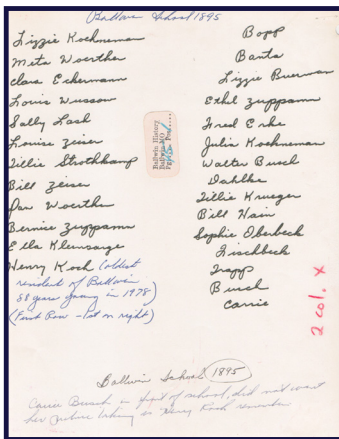 Ballwin School 1895
Lizzie Kochneman
Meta Woerther
Clara Eckermann
Louis Wusson
Sally Lash
Louise Zeiser
Tillie Strothkamp
Bill Zeiser
Dan Woerther
Bernice Zuppann
Ella Kleinsorge
Henry Koch (oldest
resident of Ballwin
88 years young in 1978)
(First Row - 1st on right)
Ballwin History
Ballwin, MO
Bopp
Banta
Lizzie Buerman
Ethel Zuppann
Fred Erke
Julia Kochneman
Walter Busch
Dahlke
Tillie Krueger
Bill Hain
Sophie Oberbeck
Fischbeck
Trapp
Busch
Carrie
2 col. x
Ballwin School 1895
Carrie Busch in front of school, did not want
her picture taking so Henry Koch remember